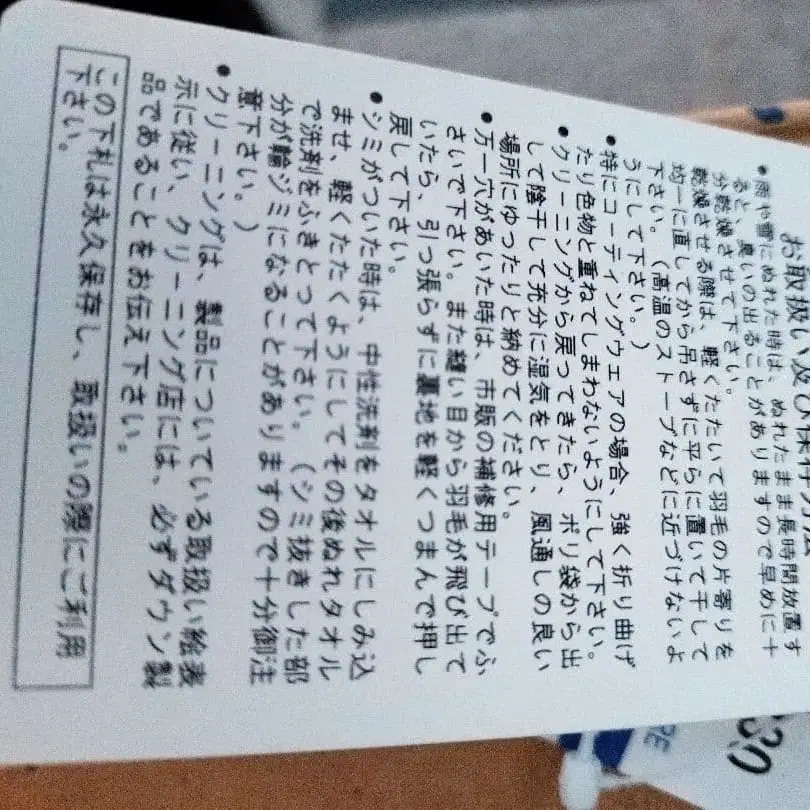 お取扱い及び保存方法
●雨や雪にぬれた時は、ぬれたまま長時間放置す
ると、臭いの出ることがありますので早めに十
分乾燥させて下さい。
乾燥させる際は、軽くたたいて羽毛の片寄りを
均一に直してから吊さずに平らに置いて干して
下さい。（高温のストーブなどに近づけないよ
うにして下さい。）
●特にコーティングウェアの場合、強く折り曲げ
たり色物と重ねてしまわないようにして下さい。
●クリーニングから戻ってきたら、ポリ袋から出
して陰干して充分に湿気をとり、風通しの良い
場所にゆったりと納めてください。
●万一穴があいた時は、市販の補修用テープでふ
さいで下さい。また縫い目から羽毛が飛び出て
いたら、引っ張らずに裏地を軽くつまんで押し
戻して下さい。
●シミがついた時は、中性洗剤をタオルにしみ込
ませ、軽くたたくようにしてその後ぬれタオル
で洗剤をふきとって下さい。（シミ抜きした部
分が輪ジミになることがありますので十分御注
意下さい。）
●クリーニングは、製品についている取扱い絵表
示に従い、クリーニング店には、必ずダウン製
品であることをお伝え下さい。
この下札は永久保存し、取扱いの際にご利用
下さい。